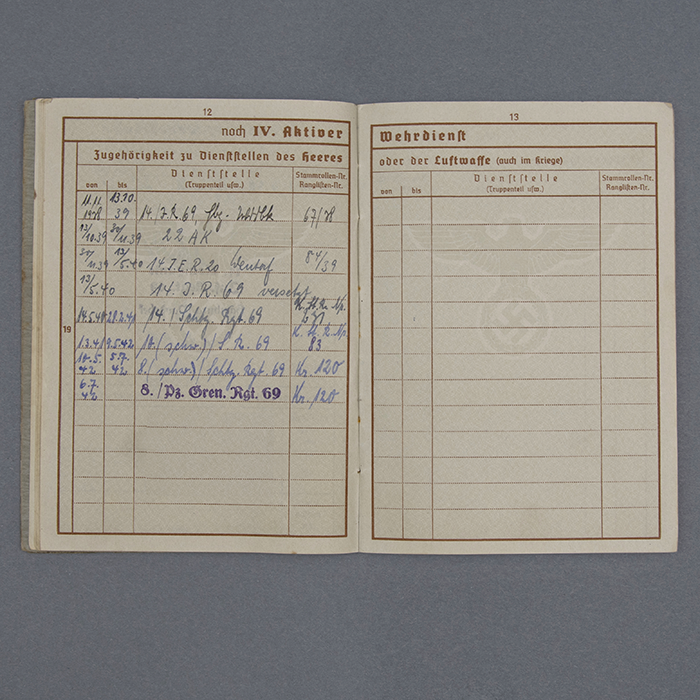 12
noch IV. Aktiver
Zugehörigkeit zu Dienststellen des Heeres
von bis Dienststelle (Truppenteil usw.) Stammrollen-Nr. Ranglisten-Nr.
19
11.11. 1938 13.10. 39 14./J.R. 69, 67/38
13/10.39 30/11.39 22 AK
31/11.39 13/5.40 14. J.E.R. 20 84/39
13/5.40 14. J.R. 69 versetzt
14.5.40 14./Schtz. Rgt. 69
10.(schw.)/S.R. 69 83
10.5. 42 5.7. 42 8.(schw.)/Schtz. Rgt. 69 Nr. 120
6.7. 42 8./Pz. Gren. Rgt. 69 Nr. 120
13
Wehrdienst
oder der Luftwaffe (auch im Kriege)
von bis Dienststelle (Truppenteil usw.) Stammrollen-Nr. Ranglisten-Nr.